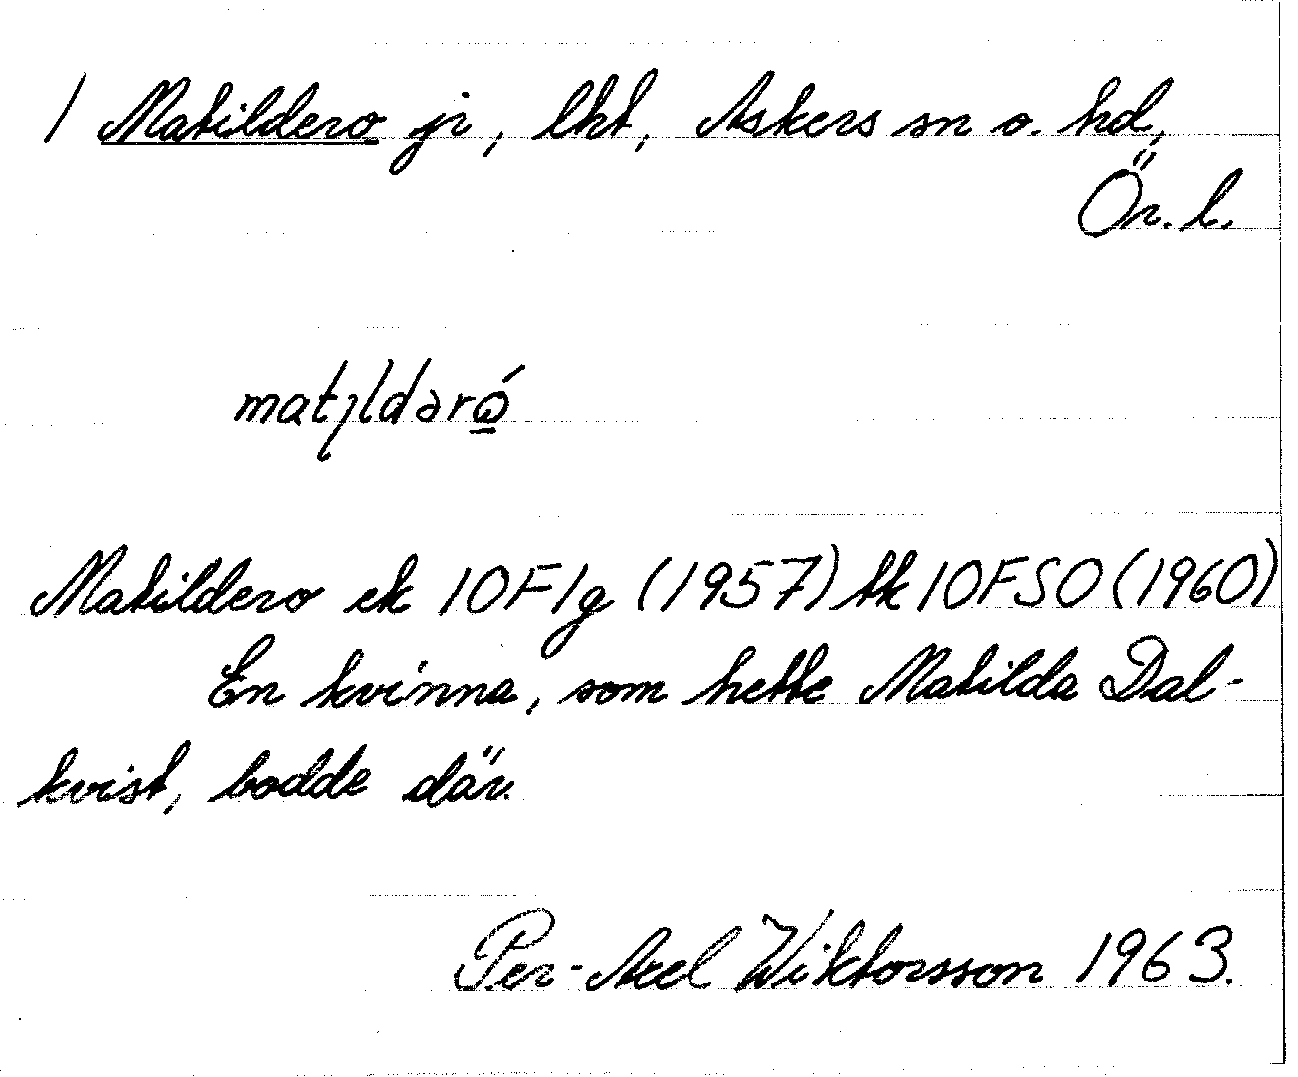 / Matildero jr, lht, Askers sn o. hd,
Ör. l.
matıldərǫ́
Matildero ek 10F1g (1957) tk 10FSO (1960)
En kvinna, som hette Matilda Dal-
kvist, bodde där.
Per-Axel Wiktorsson 1963.